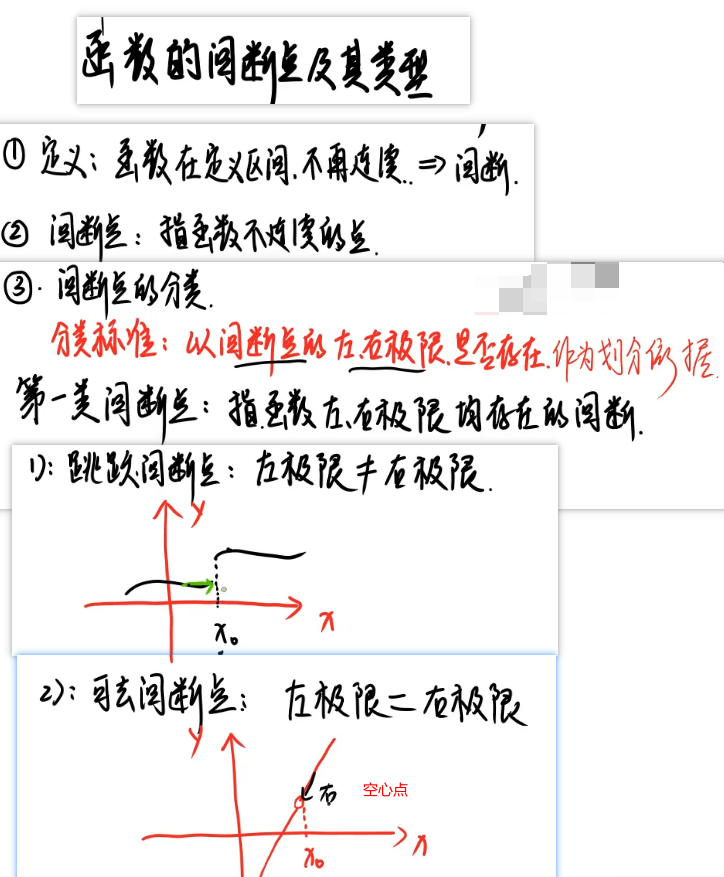 函数的间断点及其类型
① 定义：函数在定义区间.不再连续.. ⇒ 间断.
② 间断点：指函数不连续的点.
③. 间断点的分类.
分类标准：以间断点的左.右极限.是否存在.作为划分依据.
第一类间断点：指函数左、右极限均存在的间断.
1): 跳跃间断点：左极限≠右极限.
y
x
x₀
2): 可去间断点： 左极限=右极限
y
右
空心点
x
x₀